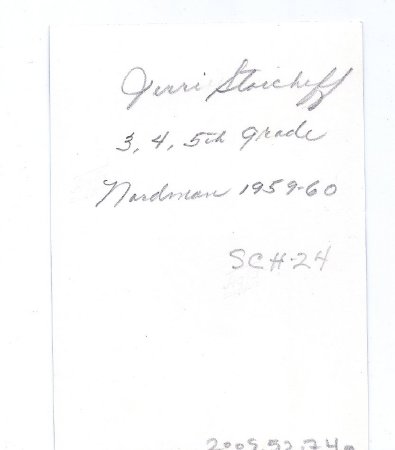 Jerri Stoicheff
3, 4, 5th grade
Nordman 1959-60
SCH-24